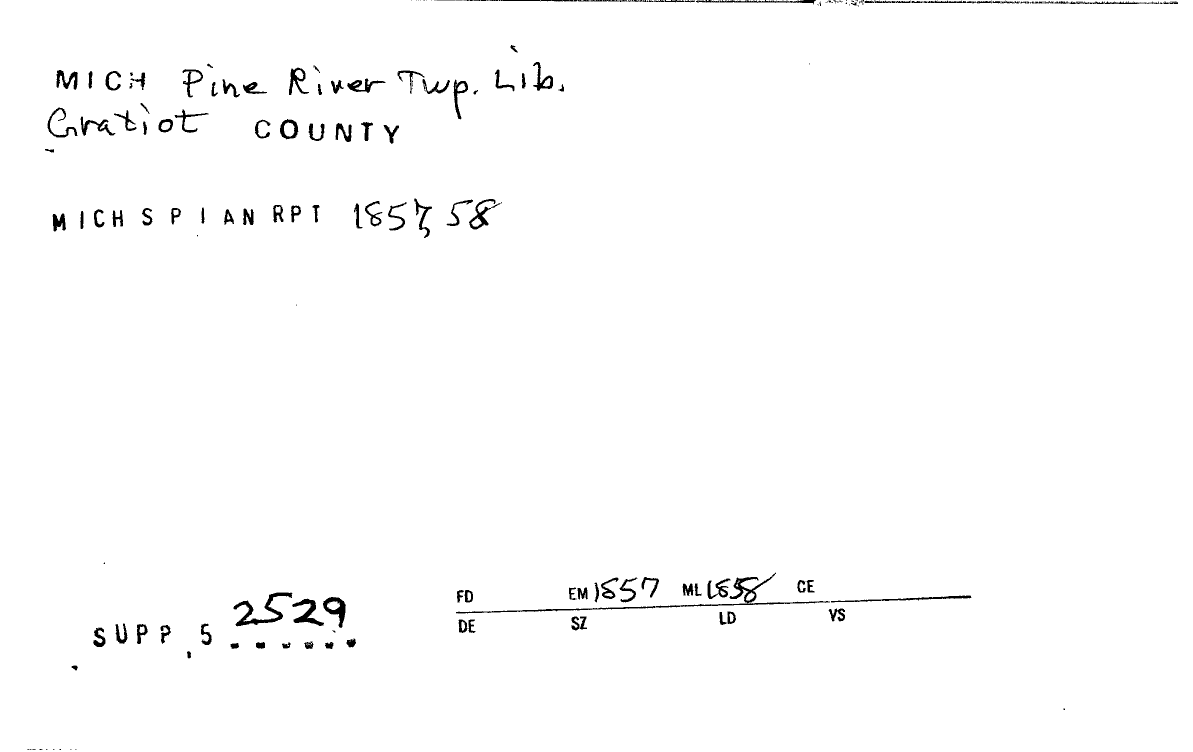 MICH Pine River Twp. Lib.
Gratiot COUNTY
MICH S P I AN RPT 1857, 58
SUPP. 5 2529
FD EM 1857 ML 1858 CE
DE SZ LD VS